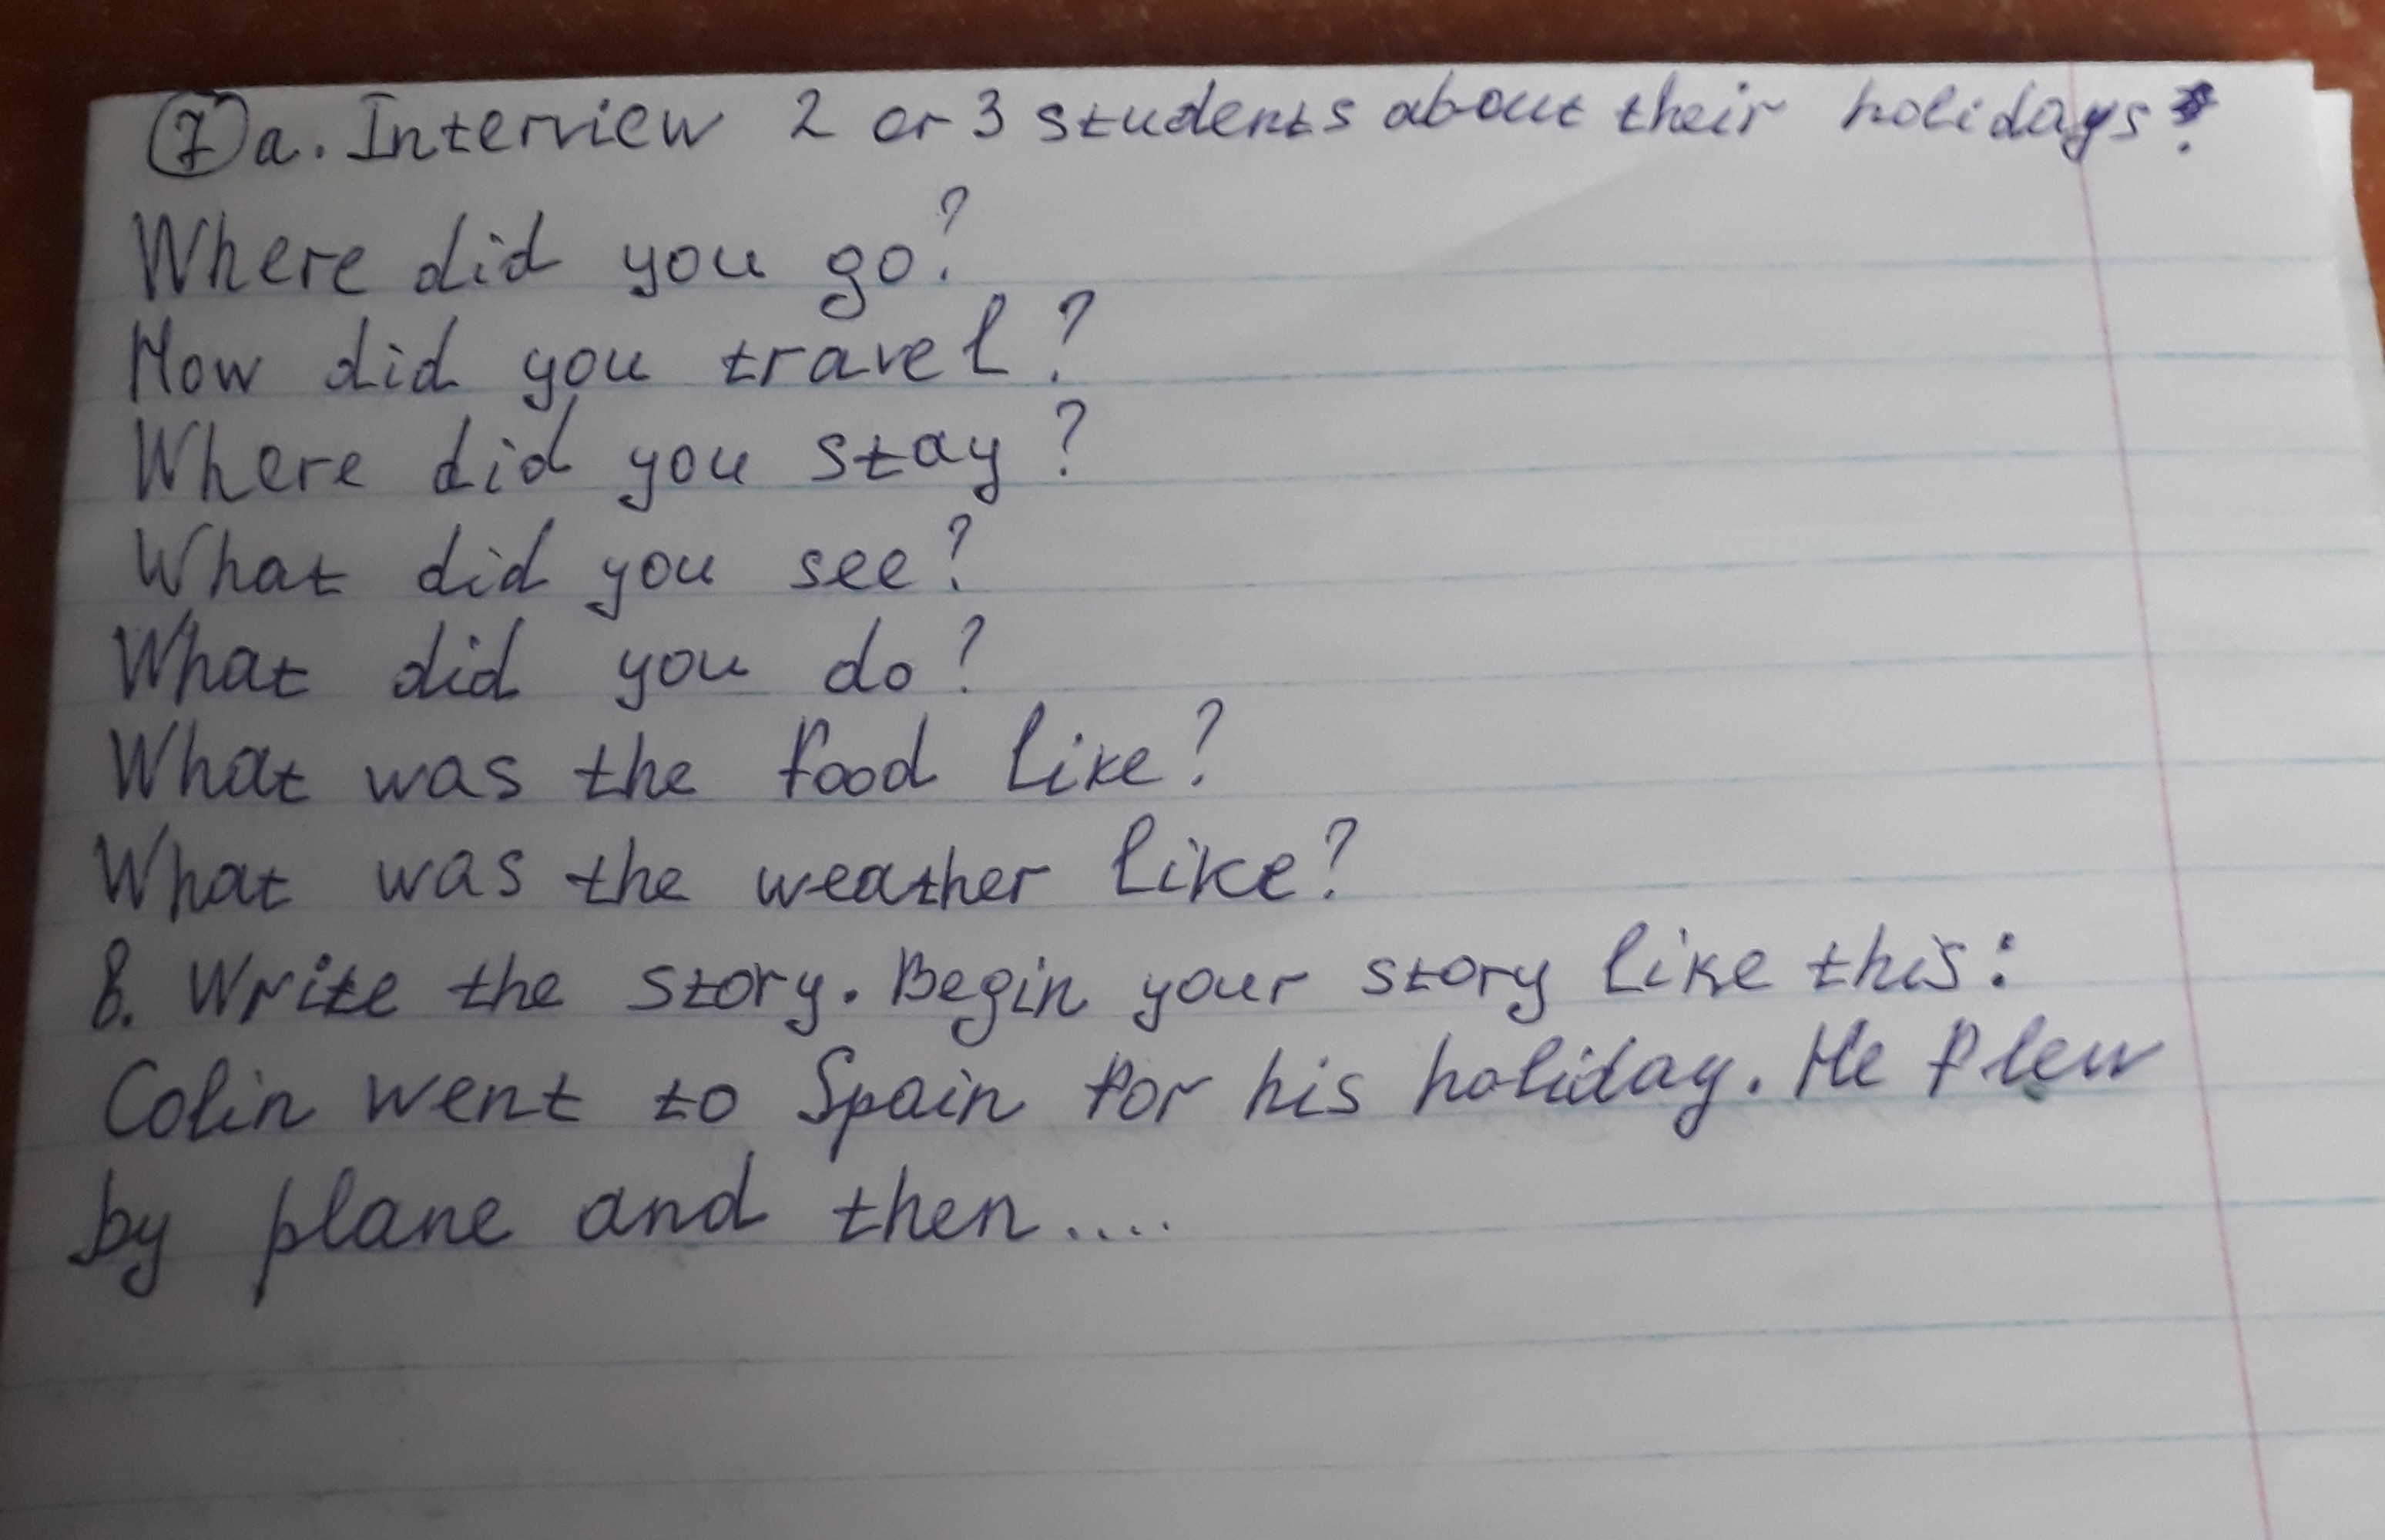 7 a. Interview 2 or 3 students about their holidays.
Where did you go?
How did you travel?
Where did you stay?
What did you see?
What did you do?
What was the food like?
What was the weather like?
b. Write the story. Begin your story like this:
Colin went to Spain for his holiday. He flew
by plane and then....